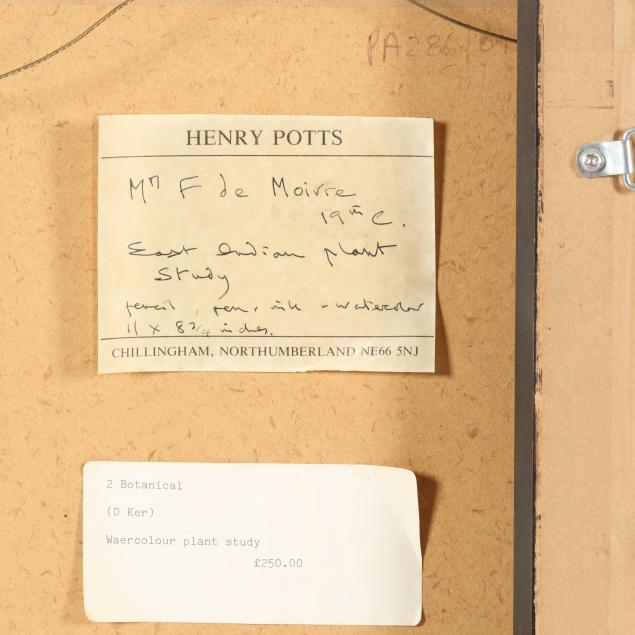 PA286/01
HENRY POTTS
Mrs F de Moivre
19th C.
East Indian plant
Study
pencil, pen, ink + watercolor
11 x 8 3/4 inches.
CHILLINGHAM, NORTHUMBERLAND NE66 5NJ
2 Botanical
(D Ker)
Waercolour plant study
£250.00